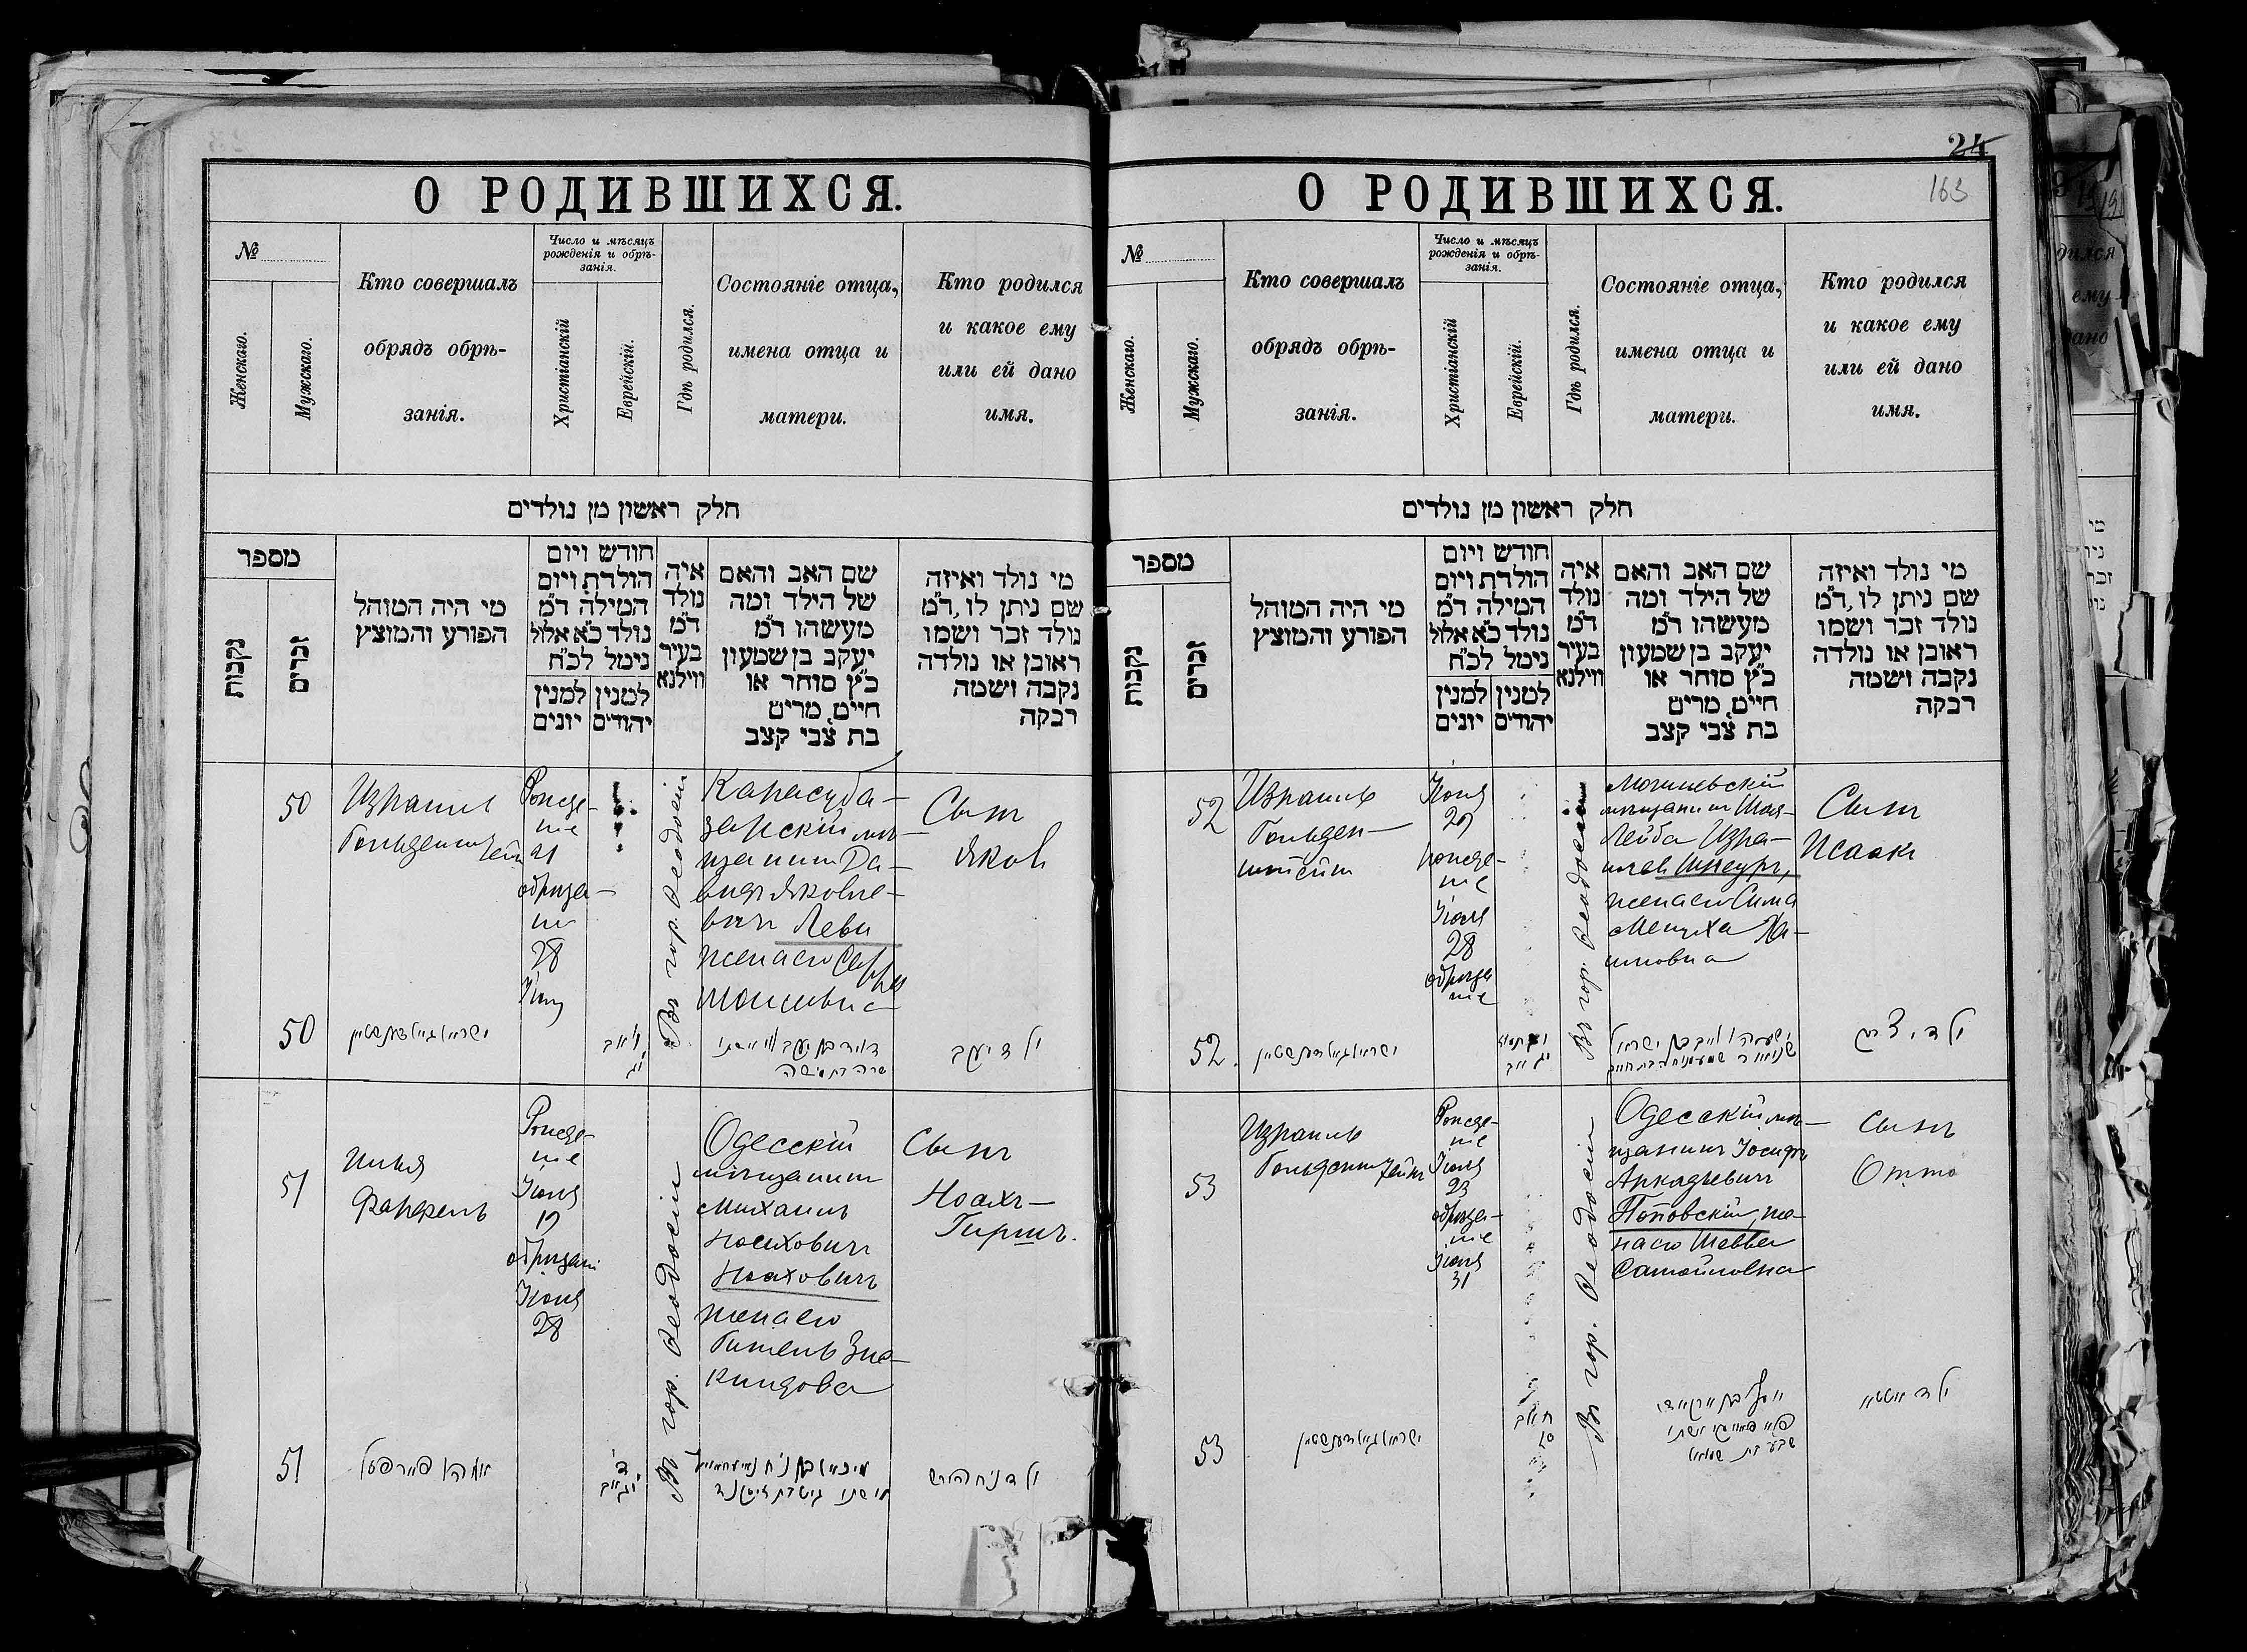 О РОДИВШИХСЯ.
№
Женскаго.
Мужскаго.
Кто совершалъ
обрядъ обрѣ-
занія.
Число и мѣсяцъ
рожденія и обрѣ-
занія.
Христіанскій
Еврейскій.
Гдѣ родился.
Состояніе отца,
имена отца и
матери.
Кто родился
и какое ему
или ей дано
имя.
חלק ראשון מן נולדים
מספר
נקבות
זכרים
מי היה המוהל
הפורע והמוצץ
חודש ויום
הולדת ויום
המילה ד״מ
נולד כ״א אלול
נימל לכ״ח
למנין
יונים
למנין
יהודים
איה
נולד
ד״מ
בעיר
ווילנא
שם האב והאם
של הילד ומה
מעשהו ד״מ
יעקב בן שמעון
כ״ץ סוחר או
חיים, מרים
בת צבי קצב
מי נולד ואיזה
שם ניתן לו, ד״מ
נולד זכר ושמו
ראובן או נולדה
נקבה ושמה
רבקה
50
Израиль
Гольденштейн
Рожде-
ніе
21
обрѣза-
ніе
28
Въ гор. Ѳеодосіи
Карасуба-
зарскій мѣ-
щанинъ Да-
видъ Яковле-
вичъ Леви
жена его Сарра
Сынъ
Яковъ
50
ישראל גאלדענשטיין
דוד בן יעקב לוי ואשתו
שרה בת משה
ילד יעקב
51
Илья
Рожде-
ніе
Іюля
19
обрѣзаніе
Іюля
28
Въ гор. Ѳеодосіи
Одесскій
мѣщанинъ
Михаилъ
Ноаховичъ
жена его
Сынъ
Ноахъ-
Гиршъ.
51
О РОДИВШИХСЯ.
24
163
№
Женскаго.
Мужскаго.
Кто совершалъ
обрядъ обрѣ-
занія.
Число и мѣсяцъ
рожденія и обрѣ-
занія.
Христіанскій
Еврейскій.
Гдѣ родился.
Состояніе отца,
имена отца и
матери.
Кто родился
и какое ему
или ей дано
имя.
חלק ראשון מן נולדים
מספר
נקבות
זכרים
מי היה המוהל
הפורע והמוצץ
חודש ויום
הולדת ויום
המילה ד״מ
נולד כ״א אלול
נימל לכ״ח
למנין
יונים
למנין
יהודים
איה
נולד
ד״מ
בעיר
ווילנא
שם האב והאם
של הילד ומה
מעשהו ד״מ
יעקב בן שמעון
כ״ץ סוחר או
חיים, מרים
בת צבי קצב
מי נולד ואיזה
שם ניתן לו, ד״מ
נולד זכר ושמו
ראובן או נולדה
נקבה ושמה
רבקה
52
Израиль
Гольден-
штейнъ
Іюля
рожде-
ніе
Іюля
28
обрѣза
ніе
Въ гор. Ѳеодосіи
Могилевскій
мѣщанинъ Шая-
Лейба Изра-
илевъ Шнеуръ,
жена его Сима
Менуха Ха-
имовна
Сынъ
Исаакъ
52.
ישראל גאלדענשטיין
53
Израиль
Гольденштейнъ
Рожде-
ніе
Іюля
23
обрѣза-
ніе
Іюля
31
Въ гор. Ѳеодосіи
Одесскій мѣ-
щанинъ Іосифъ
Аркадьевичъ
Поповскій, же-
на его Шевва
Самойловна
Сынъ
Отто
53
ישראל גאלדענשטיין